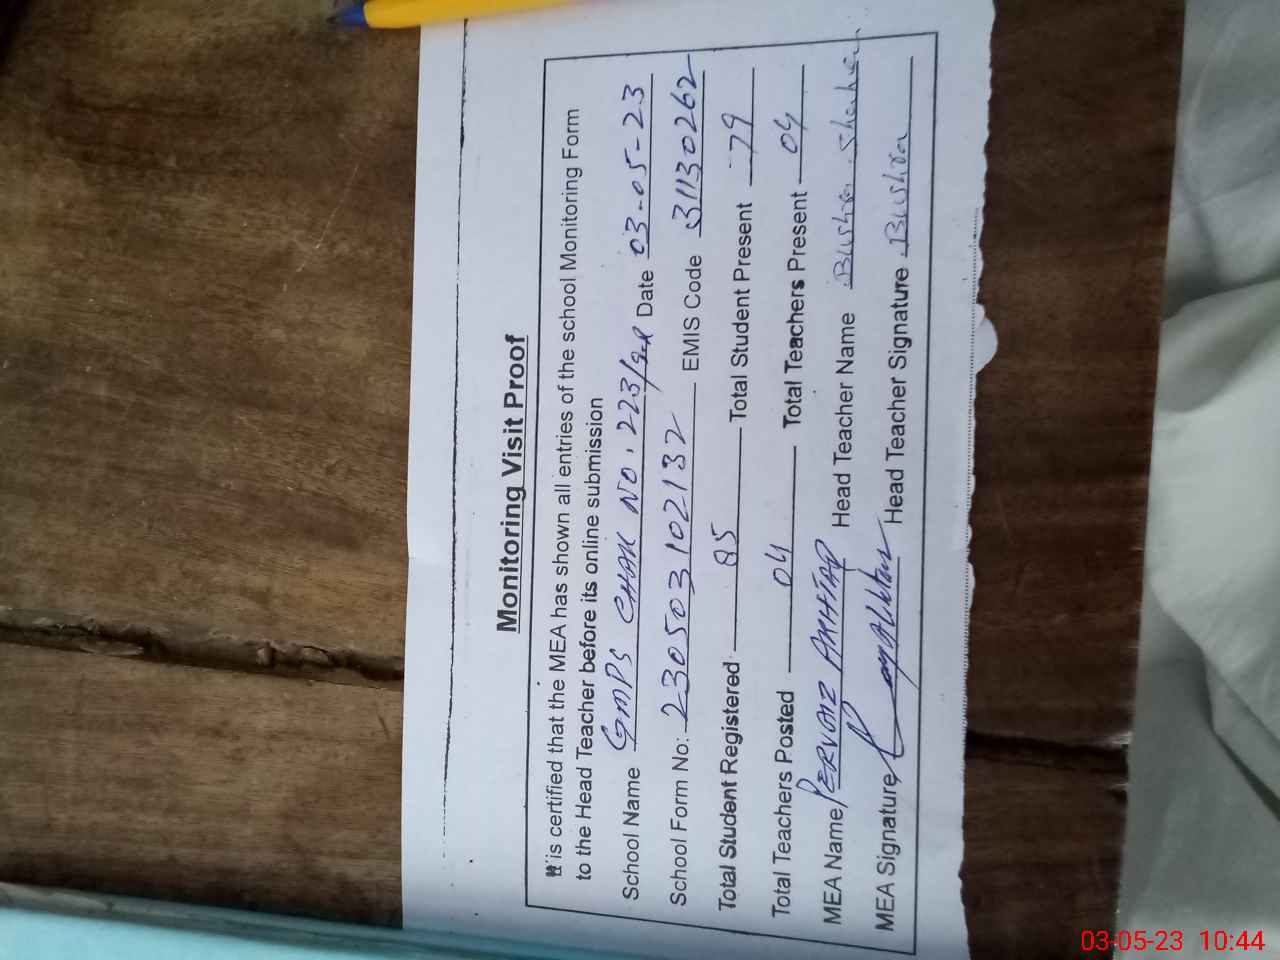 Monitoring Visit Proof
It is certified that the MEA has shown all entries of the school Monitoring Form
to the Head Teacher before its online submission
School Name GMPS CHAK NO. 223/9-R Date 03-05-23
School Form No: 230503102132 EMIS Code 31130262
Total Student Registered 85 Total Student Present 79
Total Teachers Posted 04 Total Teachers Present 04
MEA Name PERVAIZ AKHTAR Head Teacher Name Bushra
MEA Signature Head Teacher Signature Bushra
03-05-23 10:44